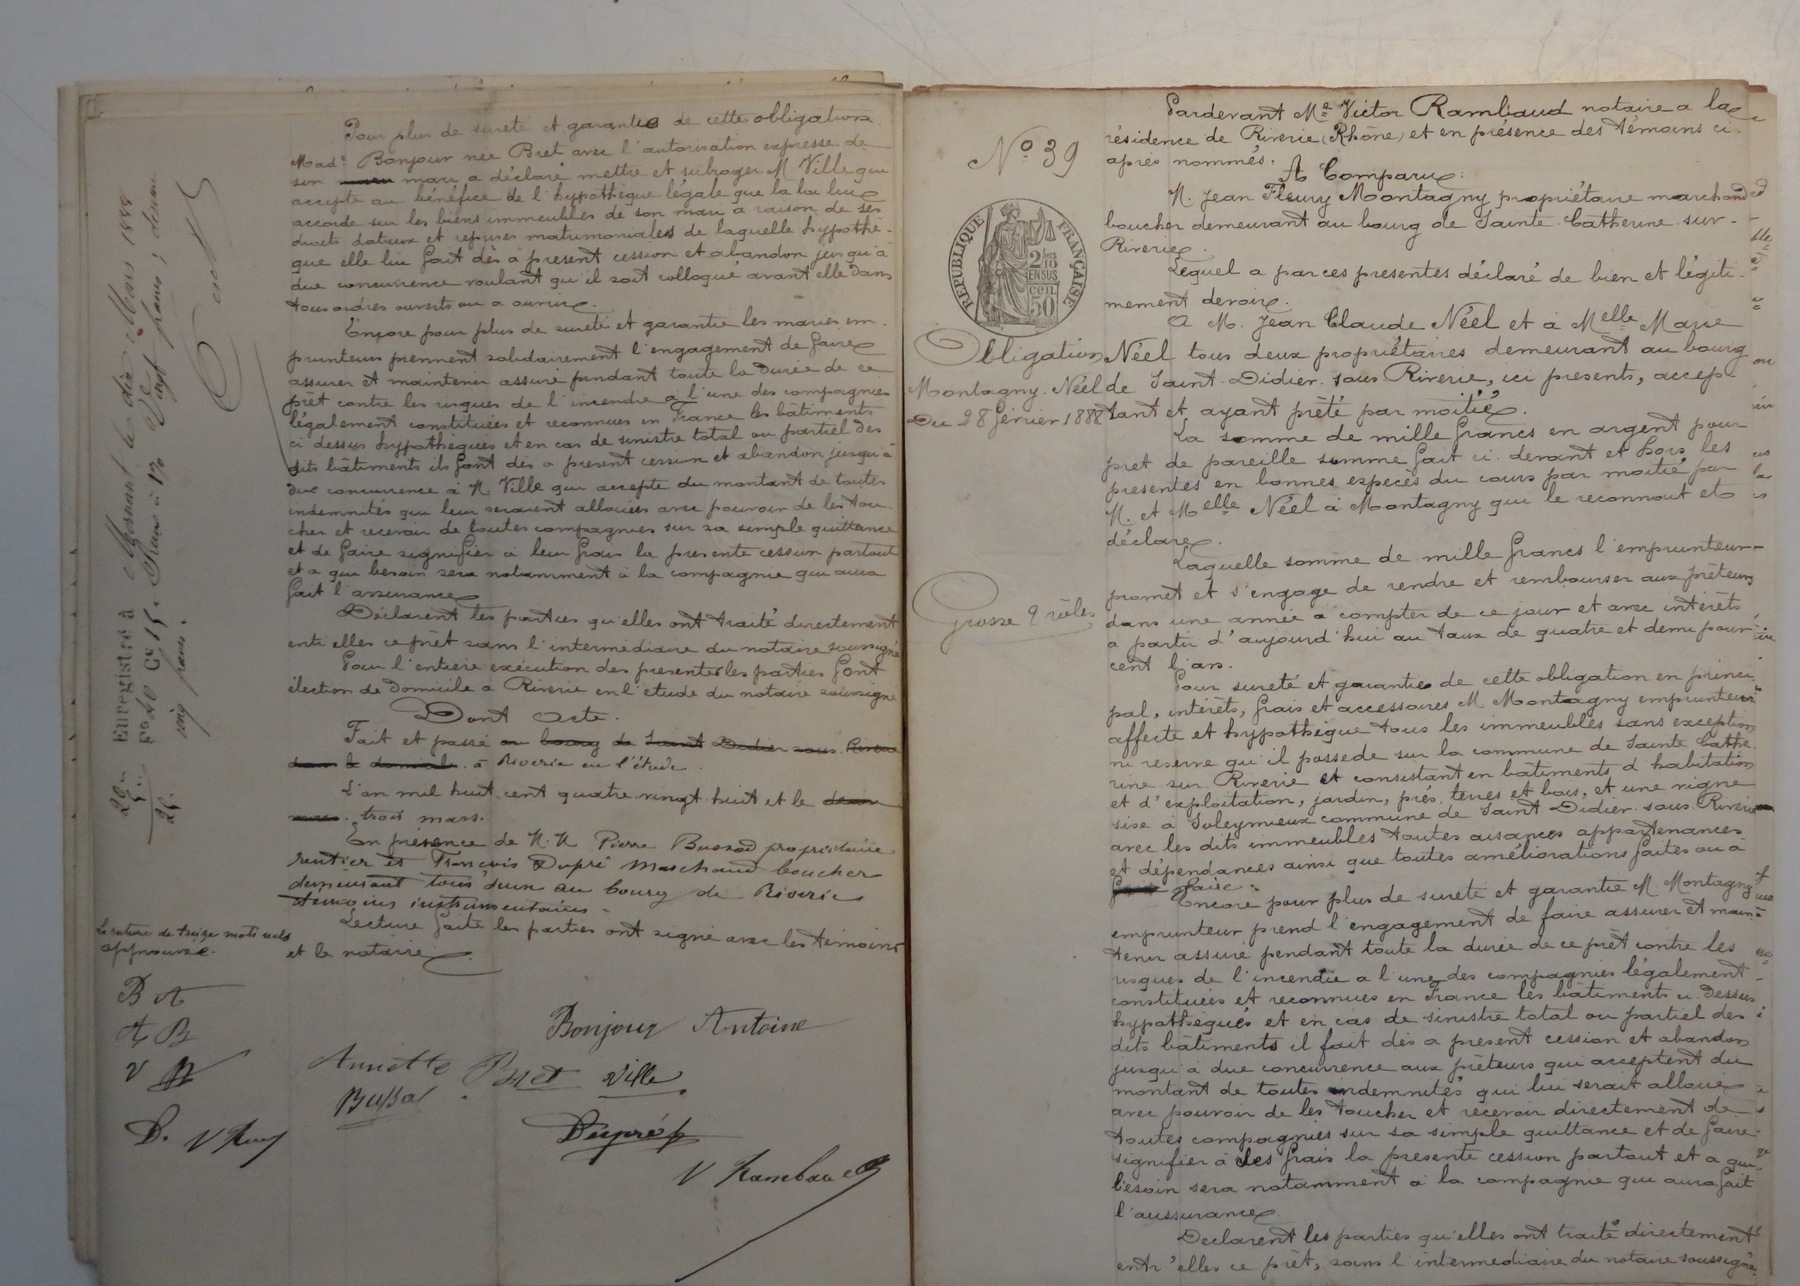 Pour plus de sureté et garantie de cette obligation
Made Bonjour née Bret avec l'autorisation expresse de
son mari a déclaré mettre et subroger M. Ville qui
accepte au bénéfice de l'hypothèque légale que la loi lui
accorde sur les biens immeubles de son mari a raison de ses
droits dotaux et reprises matrimoniales de laquelle hypothè-
que elle lui fait dès à présent cession et abandon jusqu'à
due concurrence voulant qu'il soit colloqué avant elle dans
tous ordres ouverts ou a ouvrir.
Encore pour plus de sureté et garantie les mariés em-
prunteurs prennent solidairement l'engagement de faire
assurer et maintenir assuré pendant toute la durée de ce
prêt contre les risques de l'incendie à l'une des compagnies
légalement constituées et reconnues en France les bâtiments
ci dessus hypothéqués et en cas de sinistre total ou partiel des
dits bâtiments ils font dès a présent cession et abandon jusqu'à
due concurrence à M. Ville qui accepte du montant de toutes
indemnités qui leur seraient allouées avec pouvoir de les tou-
cher et recevoir de toutes compagnies sur sa simple quittance
et de faire signifier à leur frais la présente cession partout
et a qui besoin sera notamment à la compagnie qui aura
fait l'assurance
Déclarent les parties qu'elles ont traité directement
entr'elles ce prêt sans l'intermédiaire du notaire soussigné
Pour l'entière exécution des présentes les parties font
élection de domicile à Riverie en l'étude du notaire soussigné
Dont Acte.
Fait et passé au bourg de Saint Didier sous Riverie
dans le domicile à Riverie en l'étude
L'an mil huit cent quatre vingt huit et le
trois mars.
En présence de M.M. Pierre Bussod propriétaire
rentier et François Dupré marchand boucher
demeurant tous deux au bourg de Riverie
témoins instrumentaires.
Lecture faite les parties ont signé avec les témoins
et le notaire
La rature de treize mots nuls
approuvée.
B A
A B
V
D. V Ram
Bonjour Antoine
Annette Bret Ville
Bussod
Dupré f
V Rambaud
Enregistré à Mornant le dix Mars 1888
Fo 20 Co 15. Reçu à 1% Vingt francs; décime
cinq francs.
20.
5.
25.
No 39
RÉPUBLIQUE FRANÇAISE
2/10
EN SUS
50 cen
Obligation
Montagny-Néel
Du 28 février 1888
Grosse 2 rôles
Pardevant Me Victor Rambaud notaire a la
résidence de Riverie (Rhône) et en présence des témoins ci-
après nommés.
A Comparu:
M. Jean Fleury Montagny propriétaire marchand
boucher demeurant au bourg de Sainte Catherine sur-
Riverie.
Lequel a par ces présentes déclaré de bien et légiti-
mement devoir.
A M. Jean Claude Néel et à Melle Marie
Néel tous deux propriétaires demeurant au bourg
de Saint-Didier-sous Riverie, ici présents, accep-
tant et ayant prêté par moitié.
La somme de mille francs en argent pour
pret de pareille somme fait ci-devant et hors les
présentes en bonnes espèces du cours par moitié par
M. et Melle Néel à Montagny qui le reconnait et
déclare.
Laquelle somme de mille francs l'emprunteur
promet et s'engage de rendre et rembourser aux prêteurs
dans une année à compter de ce jour et avec intérêts
a partir d'aujourd'hui au taux de quatre et demi pour
cent l'an.
Pour sureté et garantie de cette obligation en princi-
pal, intérêts, frais et accessoires M. Montagny emprunteur
affecte et hypothèque tous les immeubles sans exception
ni reserve qu'il possède sur la commune de Sainte Cathe-
rine sur Riverie et consistant en bâtiments d'habitation
et d'exploitation, jardin, prés, terres et bois, et une vigne
sise à Soleymieux commune de Saint Didier-sous Riverie
avec les dits immeubles toutes aisances appartenances
et dépendances ainsi que toutes améliorations faites ou à
faire.
Encore pour plus de sureté et garantie M. Montagny
emprunteur prend l'engagement de faire assurer et main-
tenir assuré pendant toute la durée de ce prêt contre les
risques de l'incendie a l'une des compagnies légalement
constituées et reconnues en France les bâtiments ci-dessus
hypothéqués et en cas de sinistre total ou partiel des
dits bâtiments il fait dès a présent cession et abandon
jusqu'à due concurrence aux prêteurs qui acceptent du
montant de toutes indemnités qui lui serait allouées
avec pouvoir de les toucher et recevoir directement de
toutes compagnies sur sa simple quittance et de faire
signifier à ses frais la présente cession partout et a qui
besoin sera notamment à la compagnie qui aura fait
l'aussurance
Declarent les parties qu'elles ont traité directement
entr'elles ce prêt, sans l'intermediaire du notaire soussigné